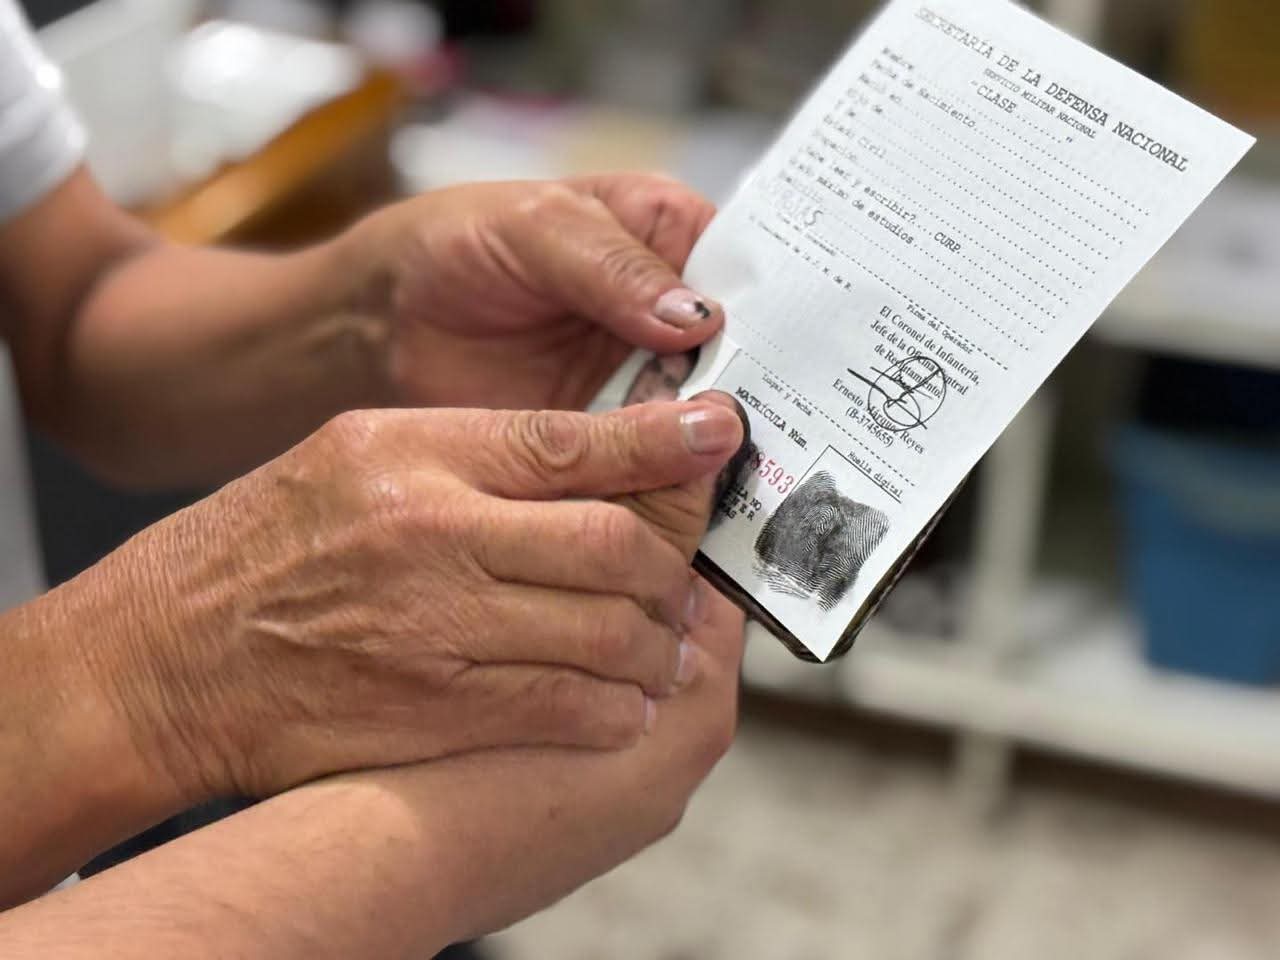 SECRETARÍA DE LA DEFENSA NACIONAL
SERVICIO MILITAR NACIONAL
"CLASE ........"
Nombre
Fecha de Nacimiento
Nació en
Hijo de
Y de
Estado Civil
Ocupación
¿Sabe leer y escribir? CURP
Grado máximo de estudios
Firma del Operador
El Coronel de Infantería,
Jefe de la Oficina Central
de Reclutamiento
Ernesto Márquez Reyes
(B-3745655)
Lugar y Fecha
MATRÍCULA Núm.
8593
Huella digital